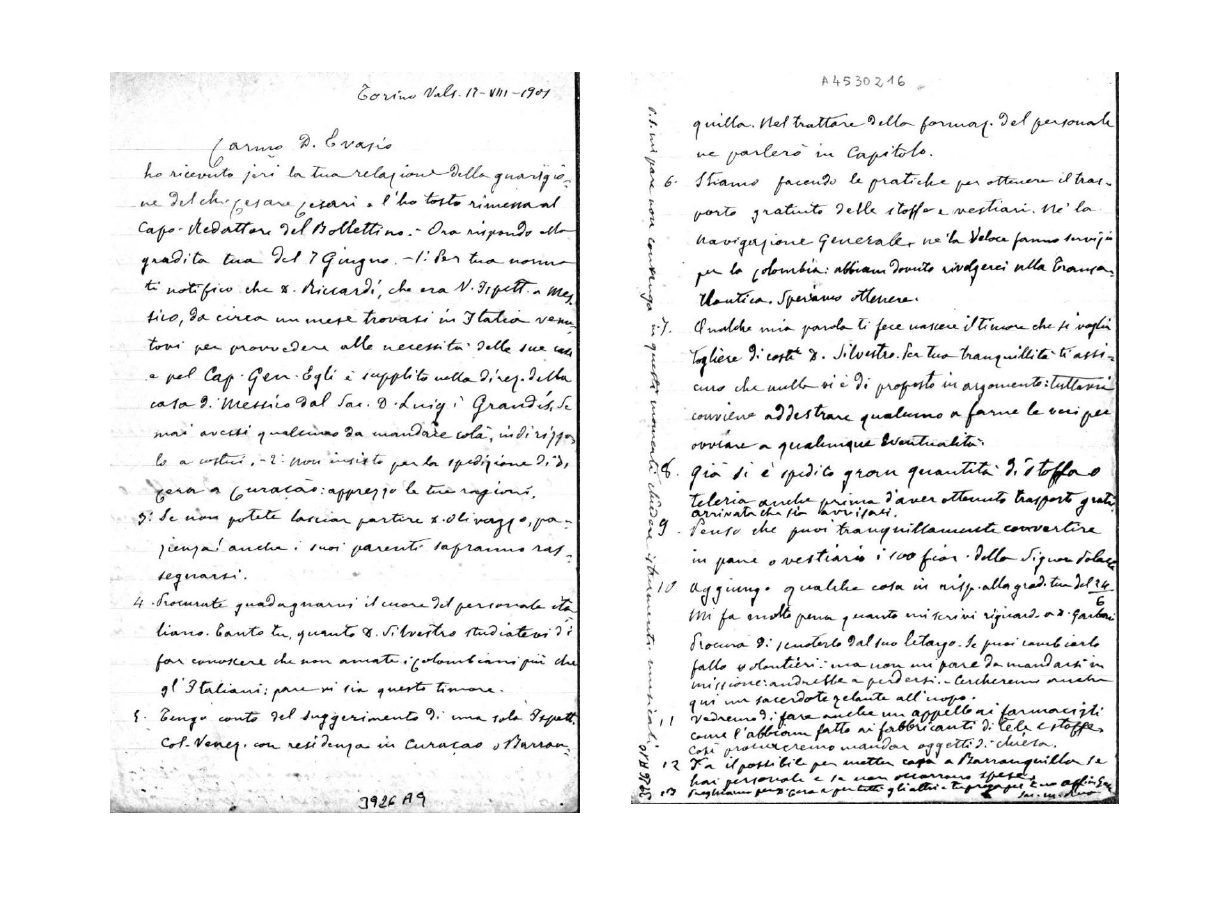 Torino Vals. 12-VIII-1901
Carmo D. Evasio
ho ricevuto jeri la tua relazione della guarigio-
ne del ch. Cesare Cesari e l'ho tosto rimessa al
Capo-Redattore del Bollettino. - Ora rispondo alla
gradita tua del 7 Giugno. - 1: Per tua norma
ti notifico che D. Riccardi, che era V. Ispett. a Mes-
sico, da circa un mese trovasi in Italia venu-
tovi per provvedere alle necessità delle sue case
e pel Cap. Gen. Egli è supplito nella direz. della
casa di Messico dal Sac. D. Luigi Grandis. Se
mai avessi qualcuno da mandare colà, indirizza-
lo a costui. - 2: Non insisto per la spedizione di
a Curaçao: apprezzo le tue ragioni.
3: Se non potete lasciar partire D. Olivazzo, pa-
zienza! anche i suoi parenti sapranno ras-
segnarsi.
4. Procurate guadagnarvi il cuore del personale ita
liano. Tanto tu, quanto D. Silvestro studiatevi di
far conoscere che non amate i Colombiani più che
gl'Italiani: pare vi sia questo timore.
5. Tengo conto del suggerimento di una sola Ispett.
Col. Venez. con residenza in Curaçao o Barran-
3926 A9
A4530216
quilla. Nel trattare della formaz. del personale
ne parlerò in Capitolo.
6. Stiamo facendo le pratiche per ottenere il tras-
porto gratuito delle stoffe e vestiari. Nè la
Navigazione Generale, nè la Veloce fanno servizio
per la Colombia: abbiam dovuto rivolgerci alla Transa-
tlantica. Speriamo ottenere.
7. Qualche mia parola ti fece nascere il timore che si voglia
togliere di costì D. Silvestro. Per tua tranquillità ti assi-
curo che nulla vi è di proposto in argomento: tuttavia
conviene addestrare qualcuno a farne le veci per
ovviare a qualunque eventualità.
8. Già si è spedito gran quantità di stoffa o
teleria anche prima d'aver ottenuto trasporto gratis
arrivata che sia avvisaci.
9. Penso che puoi tranquillamente convertire
in pane o vestiario i 100 fior. della Signora
10 Aggiungo qualche cosa in risp. alla gradita tua del 24/6
Mi fa molta pena quanto mi scrivi riguardo a D.
Procura di scuoterlo dal suo letargo. Se puoi cambiarlo
fallo volontieri: ma non mi pare da mandarsi in
missione: andrebbe a perdersi. - Cercheremo anche
qui un sacerdote zelante all'uopo.
11 Vedremo di fare anche un appello ai farmacisti
come l'abbiam fatto ai fabbricanti di tela e stoffe.
Così procureremo mandar oggetti di chiesa.
12 Fa il possibile per metter casa a Barranquilla se
hai personale e se non occorrano spese.
13 Preghiamo per e per tutti gli altri e tu prega per
P.S. mi pare non convenga in questi momenti chiedere istrumenti musicali
3926 A10